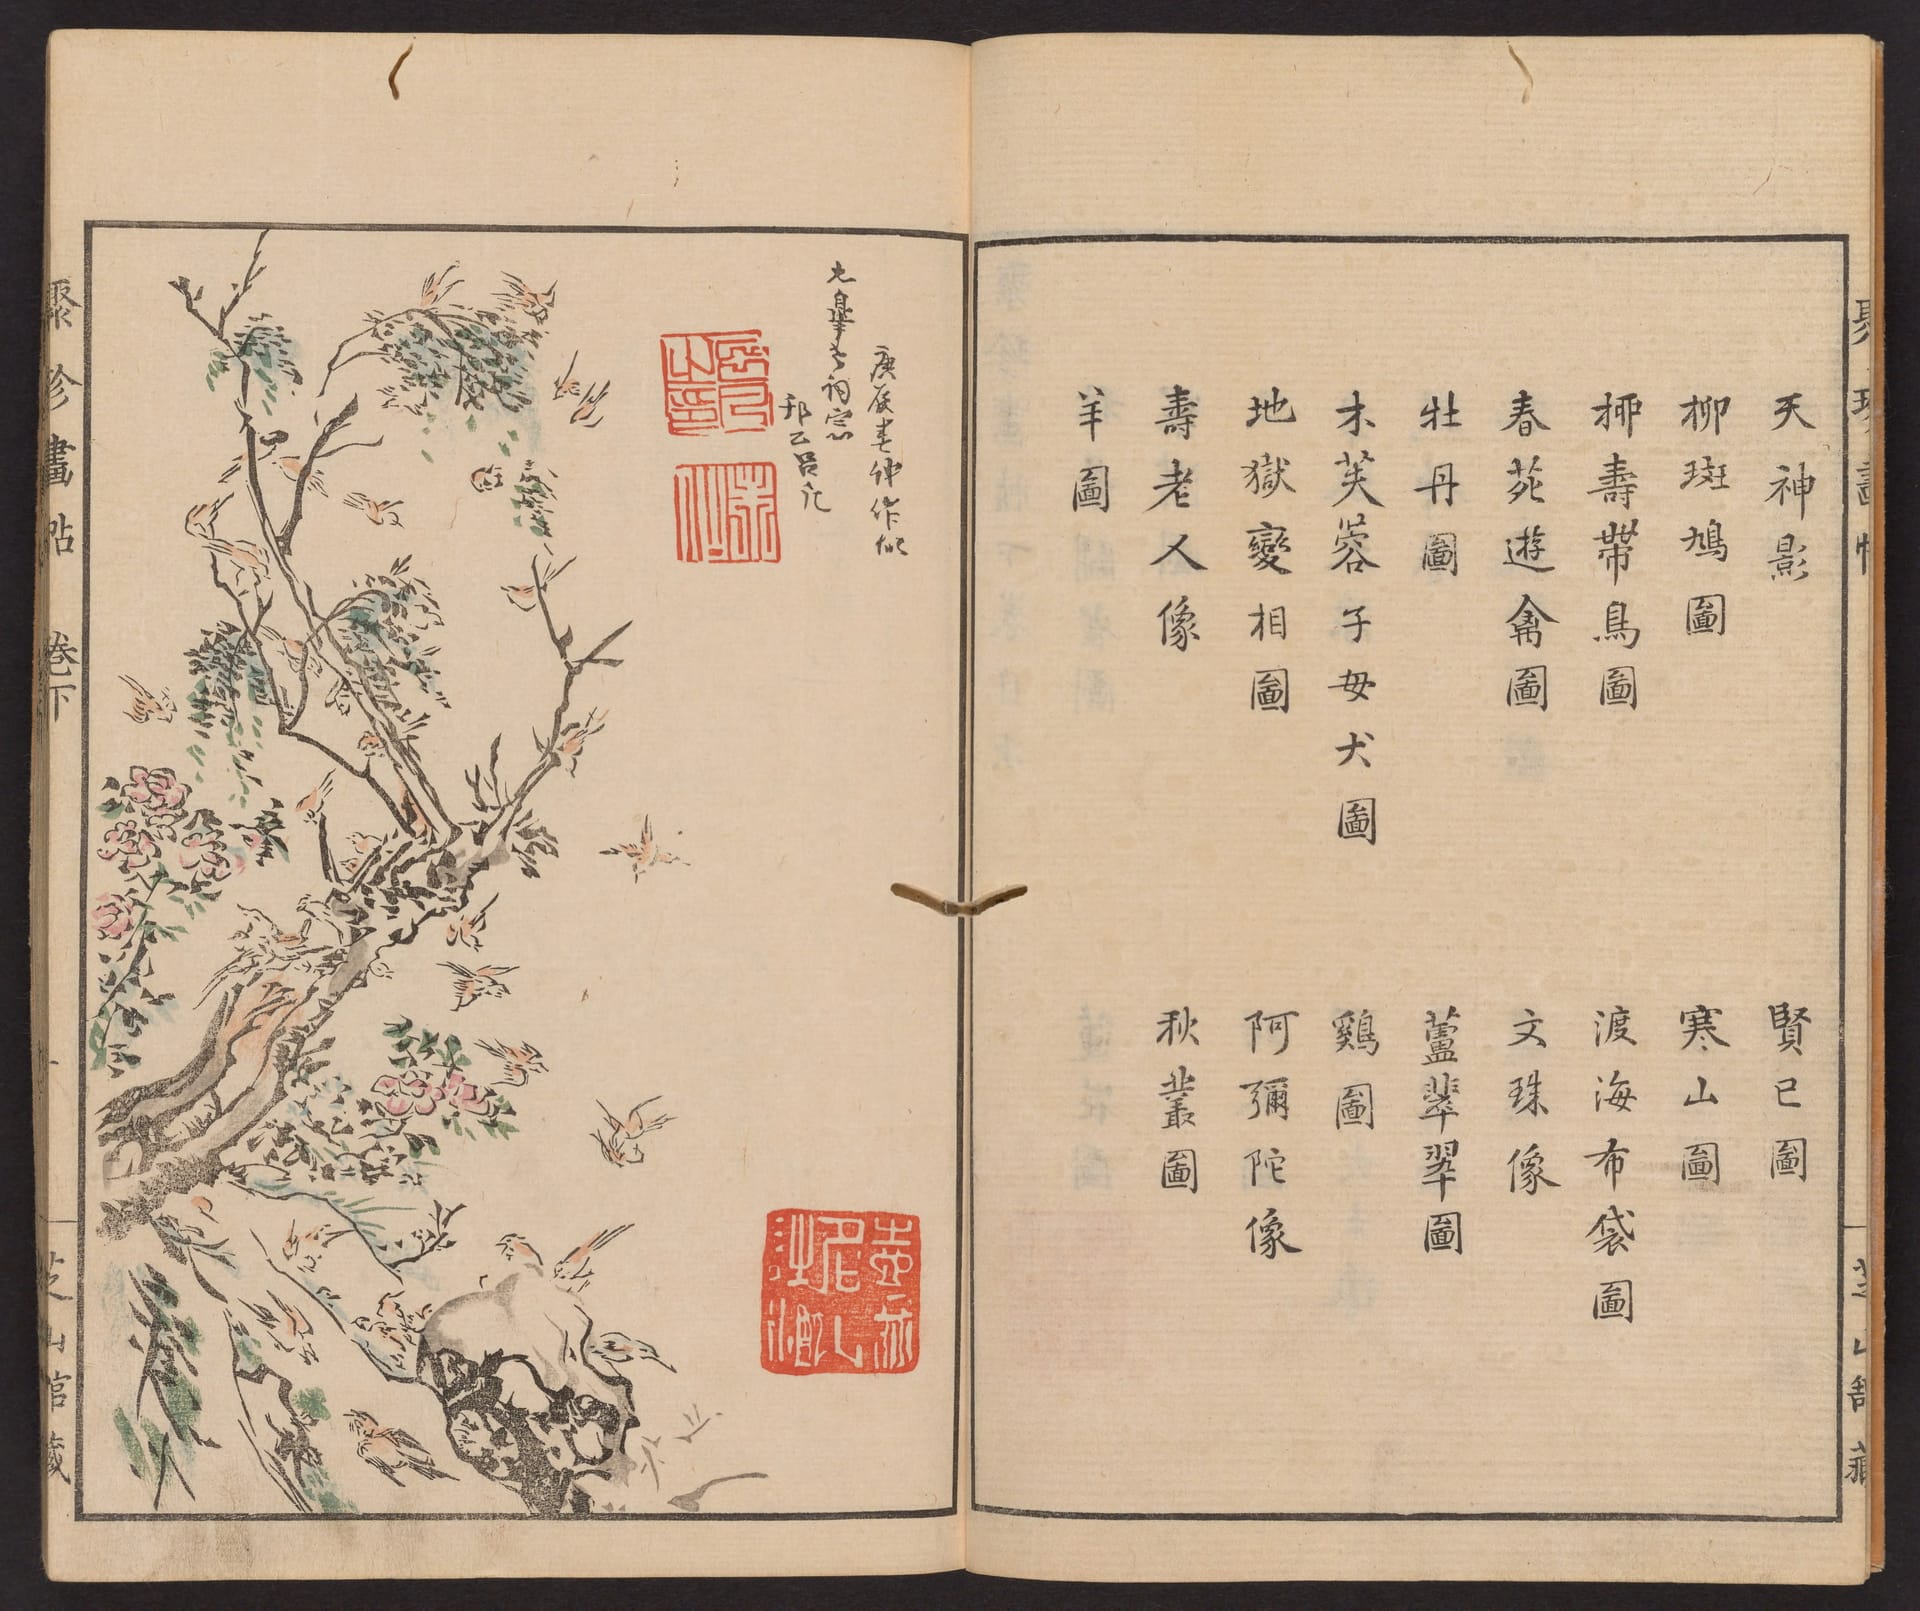 天神影
賢己圖
柳斑鳩圖
寒山圖
柳壽帶鳥圖
渡海布袋圖
春苑遊禽圖
文珠像
牡丹圖
蘆翡翠圖
木芙蓉子母犬圖
鷄圖
地獄變相圖
阿彌陀像
壽老人像
秋叢圖
羊圖
聚珍畫帖
芝山館藏
庚辰春仲作似
九皐老詞宗
聚珍畫帖 卷下
一
芝山館藏